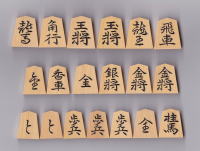 龍馬 角行 王將 玉將 龍王 飛車
全 香車 金 銀將 金將 金將
と と 歩兵 歩兵 全 桂馬